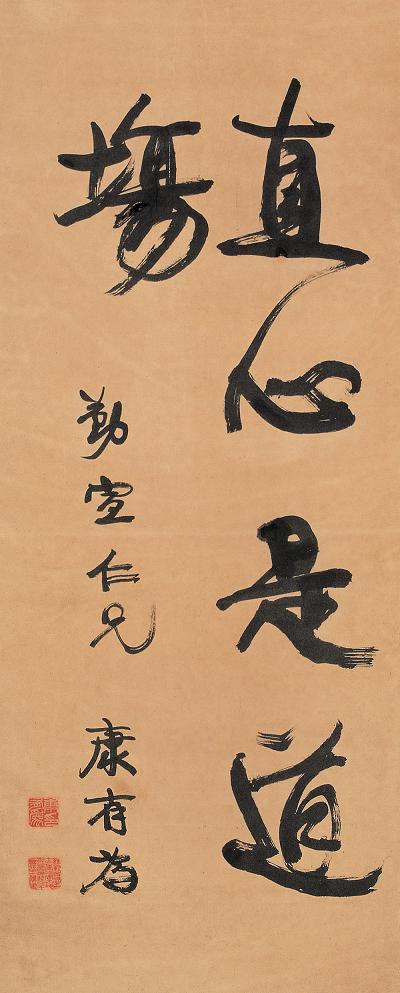 直心是道
場
勤宣仁兄
康有為